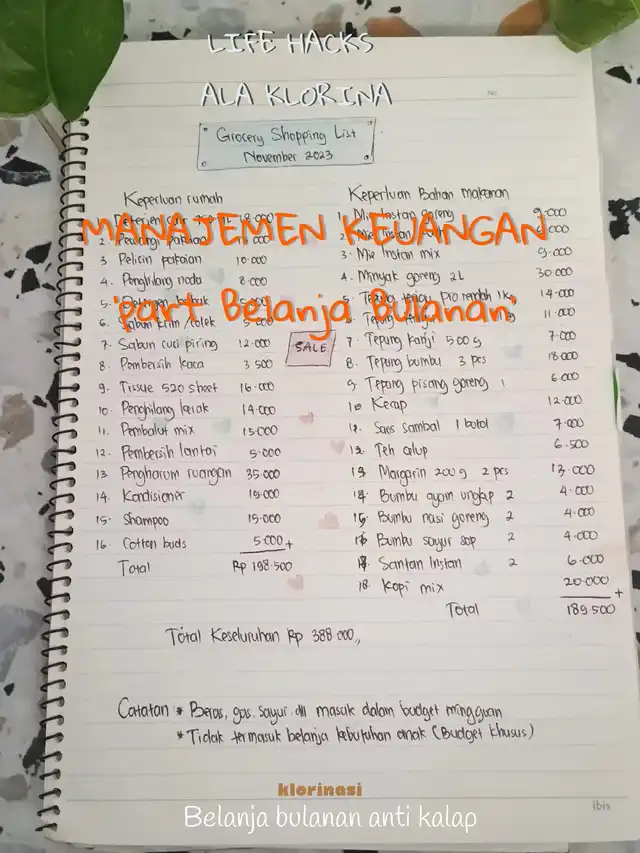 LIFE HACKS
ALA KLORINA
No
Grocery Shopping List
November 2023
Keperluan rumah
MANAJEMEN KEUANGAN
"part Belanja Bulanan"
1. 18.000
2. Pewangi pakaian
3 Pelicin pakaian 10.000
4. Penghilang noda 8.000
5.
6. Sabun krim /colek 5.000
7. Sabun cuci piring 12.000
8. Pembersih kaca 3 500
9. Tissue 520 sheet 16.000
10. Penghilang kerak 14.000
11. Pembalut mix 15.000
12. Pembersih lantai 5.000
13 Pengharum ruangan 35.000
14. Kondisioner 15.000
15. Shampoo 15.000
16. Cotton buds 5.000 +
Total Rp 198.500
SALE
Keperluan Bahan makanan
1. Mie Instan goreng 9.000
2.
3. Mie Instan mix 9.000
4. Minyak goreng 2L 30 000
5 Tepung terigu pro rendah 1kg 14.000
6 11.000
7. Tepung kanji 500 g 7.000
8. Tepung bumbu 3 pcs 18.000
9 Tepung pisang goreng 1 6.000
10 Kecap 12.000
12. Saos sambal 1 botol 7.000
Teh celup 6.500
Margarin 200 g 2 pcs 13.000
Bumbu ayam ungkep 2 4.000
Bumbu nasi goreng 2 4.000
Bumbu sayur sop 2 4.000
Santan Instan 2 6.000
18. Kopi mix 20.000 +
Total 189.500
Total Keseluruhan Rp 388.000,,
Catatan * Beras, gas, sayur, dll masuk dalam budget mingguan
* Tidak termasuk belanja kebutuhan anak (Budget khusus)
klorinasi
ibis
Belanja bulanan anti kalap